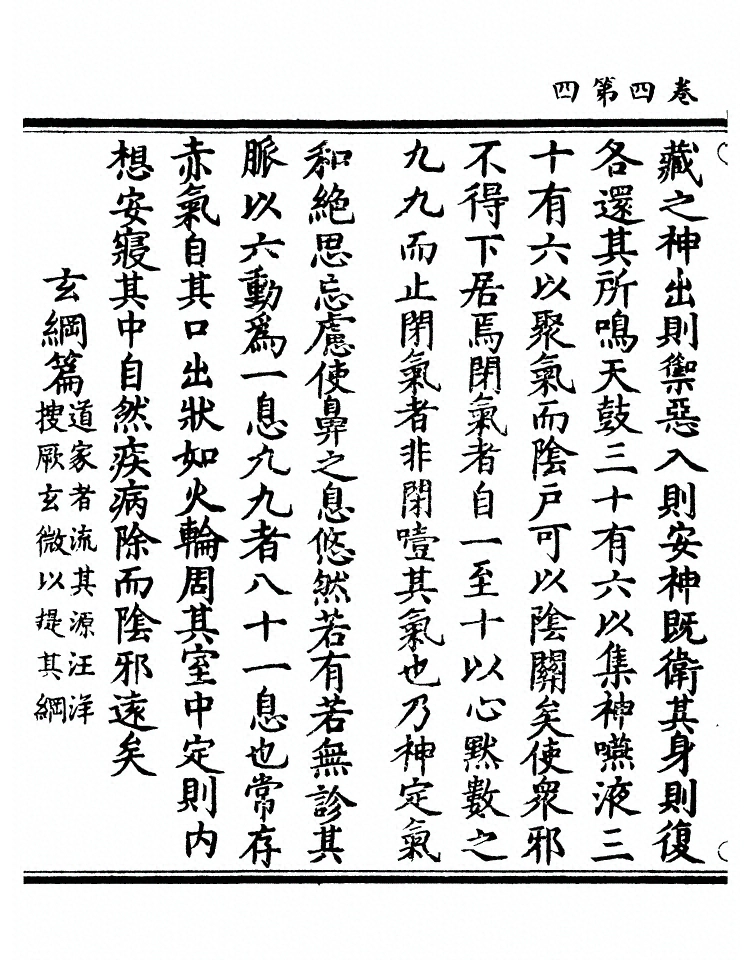 卷四第四
藏之神出則禦惡入則安神既衛其身則復
各還其所鳴天鼓三十有六以集神嚥液三
十有六以聚氣而陰户可以陰關矣使衆邪
不得下居焉閉氣者自一至十以心默數之
九九而止閉氣者非閉噎其氣也乃神定氣
和絶思忘慮使鼻之息悠然若有若無診其
脈以六動爲一息九九者八十一息也常存
赤氣自其口出狀如火輪周其室中定則内
想安寢其中自然疾病除而陰邪遠矣
玄綱篇
道家者流其源汪洋
捜厥玄微以提其綱